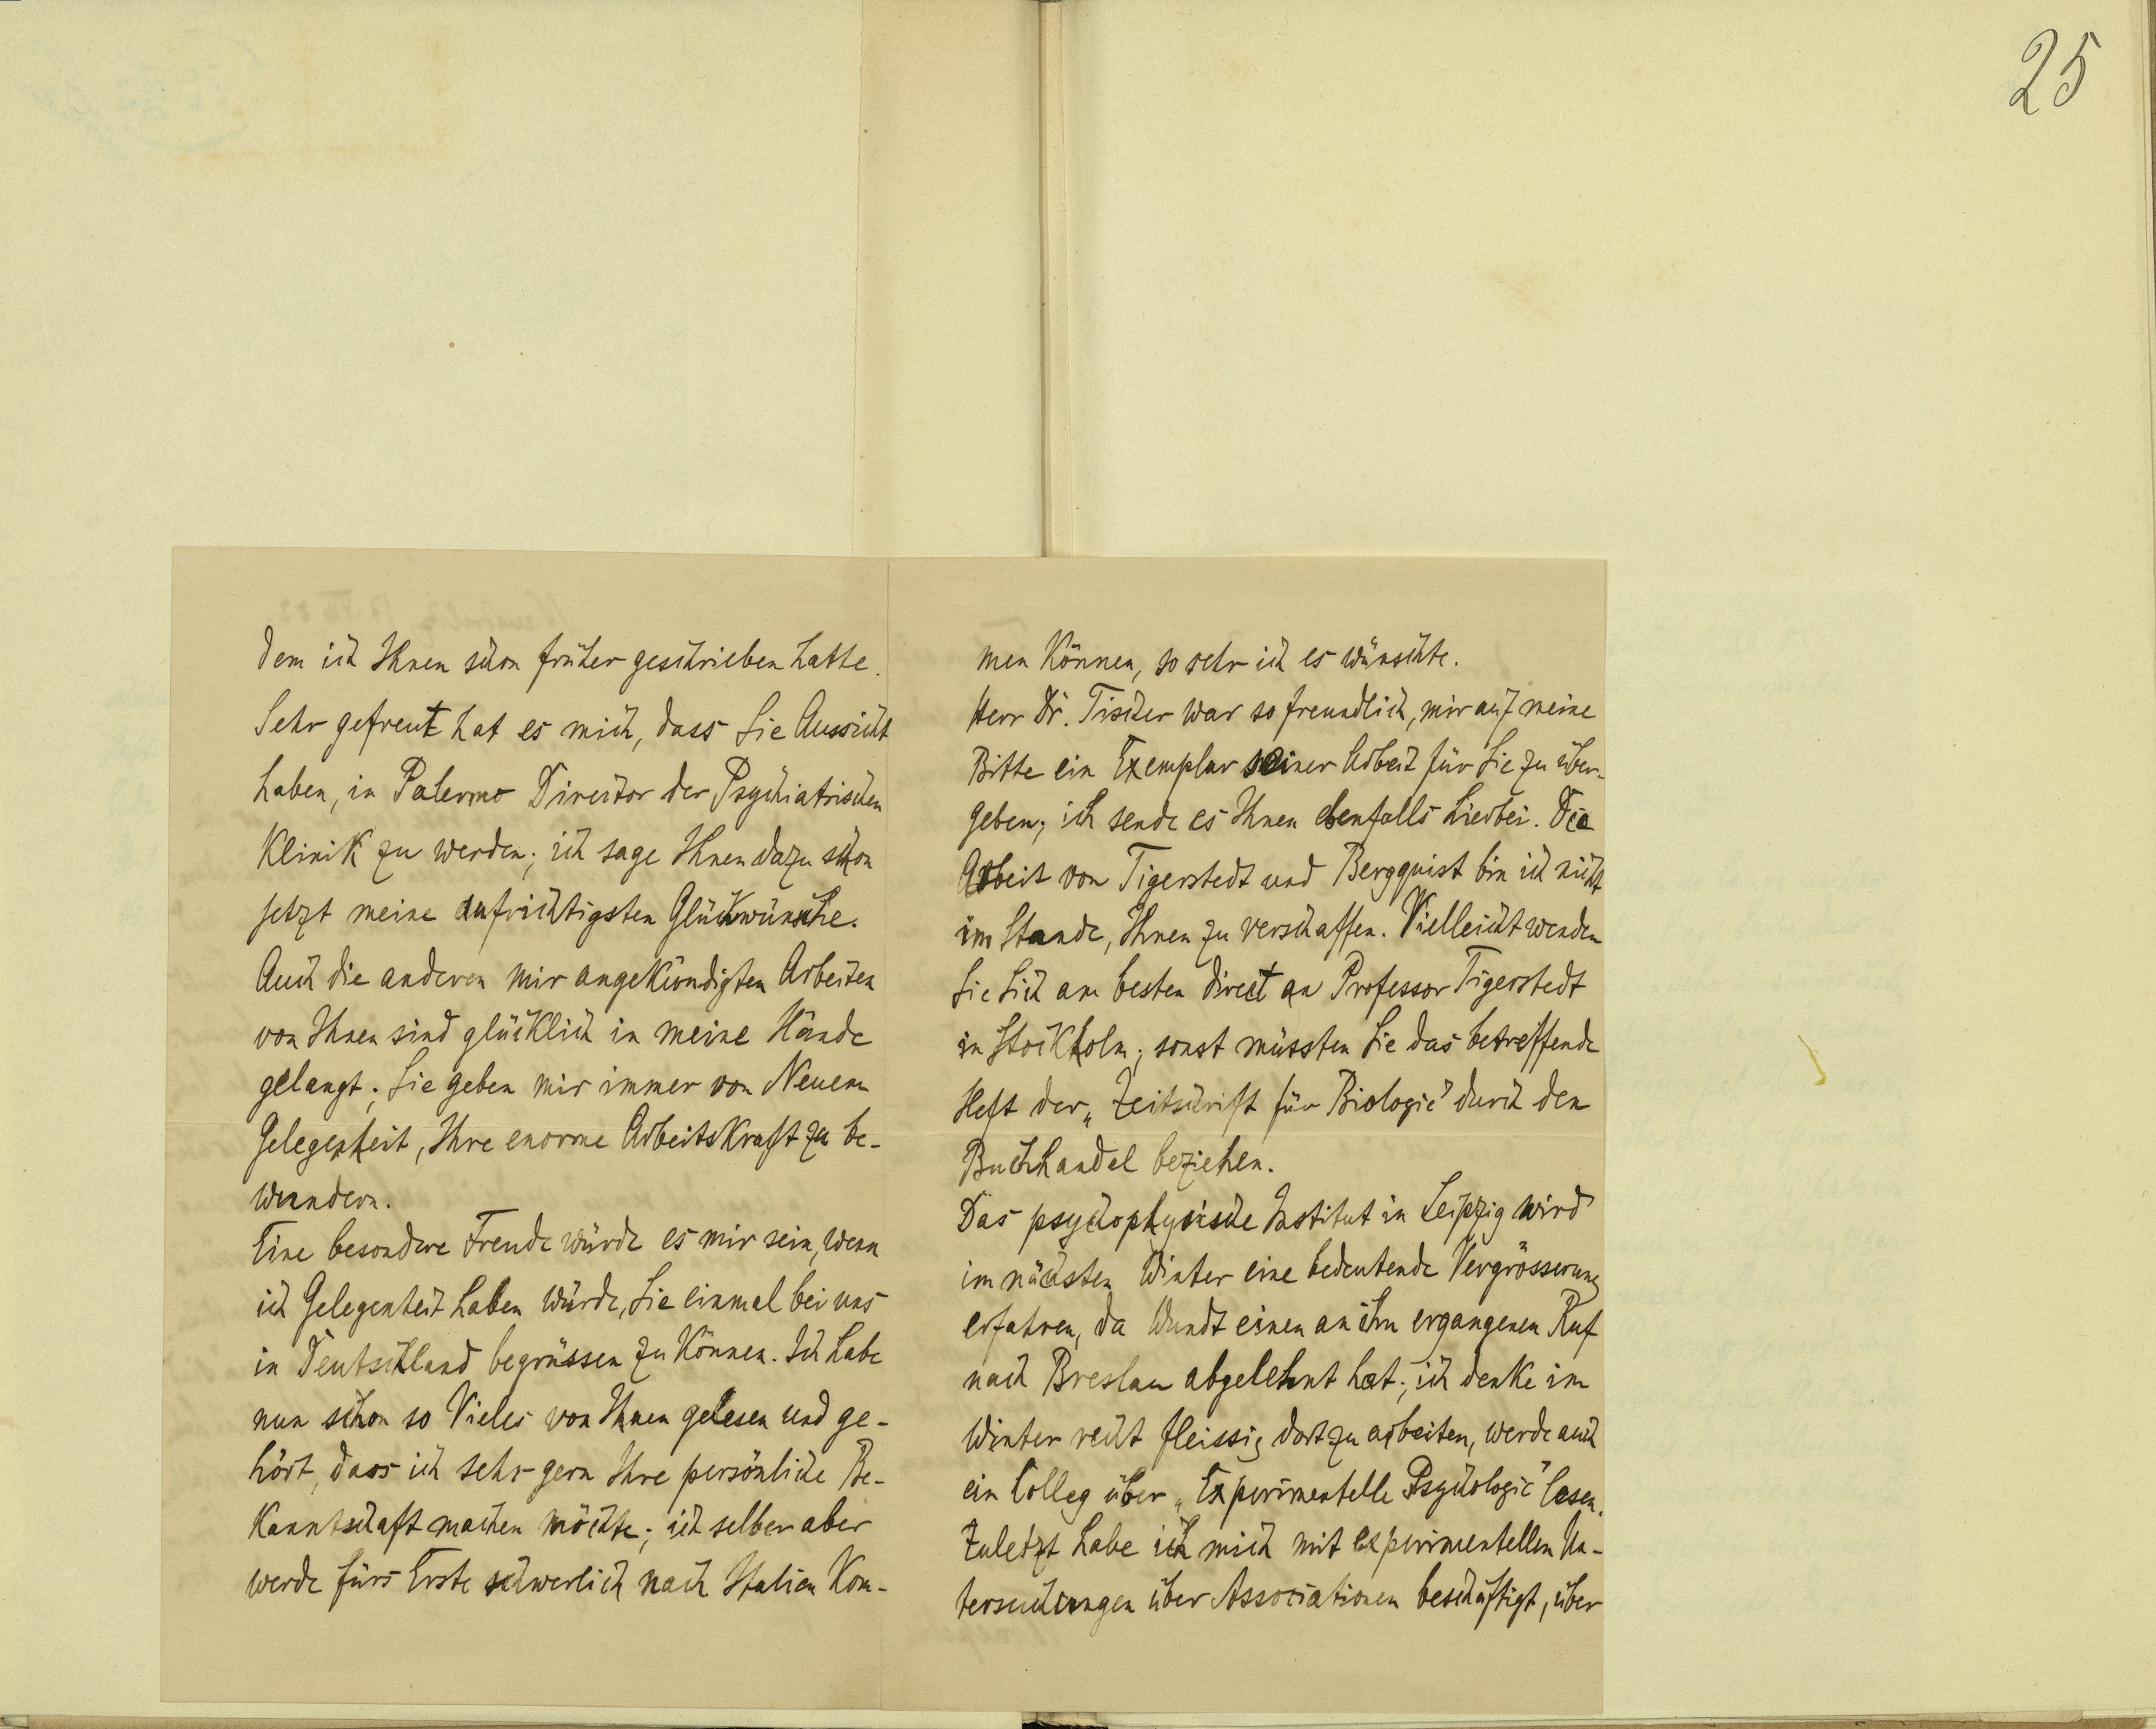 25
dem ich Ihnen schon früher geschrieben hatte.
Sehr gefreut hat es mich, dass Sie Aussicht
haben, in Palermo Director der Psychiatrischen
Klinik zu werden; ich sage Ihnen dazu schon
jetzt meine aufrichtigsten Glückwünsche.
Auch die anderen mir angekündigten Arbeiten
von Ihnen sind glücklich in meine Hände
gelangt; Sie geben mir immer von Neuem
Gelegenheit, Ihre enorme Arbeitskraft zu be-
wundern.
Eine besondere Freude würde es mir sein, wenn
ich Gelegenheit haben würde, Sie einmal bei uns
in Deutschland begrüssen zu können. Ich habe
nun schon so Vieles von Ihnen gelesen und ge-
hört, dass ich sehr gern Ihre persönliche Be-
kanntschaft machen möchte; ich selber aber
werde fürs Erste schwerlich nach Italien kom-
men können, so sehr ich es wünschte.
Herr Dr. Tischer war so freundlich, mir auf meine
Bitte ein Exemplar seiner Arbeit für Sie zu über-
geben; ich sende es Ihnen ebenfalls hierbei. Die
Arbeit von Tigerstedt und Bergquist bin ich nicht
im Stande, Ihnen zu verschaffen. Vielleicht wenden
Sie Sich am besten direct an Professor Tigerstedt
in Stockholm; sonst müssten Sie das betreffende
Heft der „Zeitschrift für Biologie" durch den
Buchhandel beziehen.
Das psychophysische Institut in Leipzig wird
im nächsten Winter eine bedeutende Vergrösserung
erfahren, da Wundt einen an ihn ergangenen Ruf
nach Breslau abgelehnt hat; ich denke im
Winter recht fleissig dort zu arbeiten, werde auch
ein Colleg über „Experimentelle Psychologie" lesen.
Zuletzt habe ich mich mit experimentellen Un-
tersuchungen über Associationen beschäftigt, über